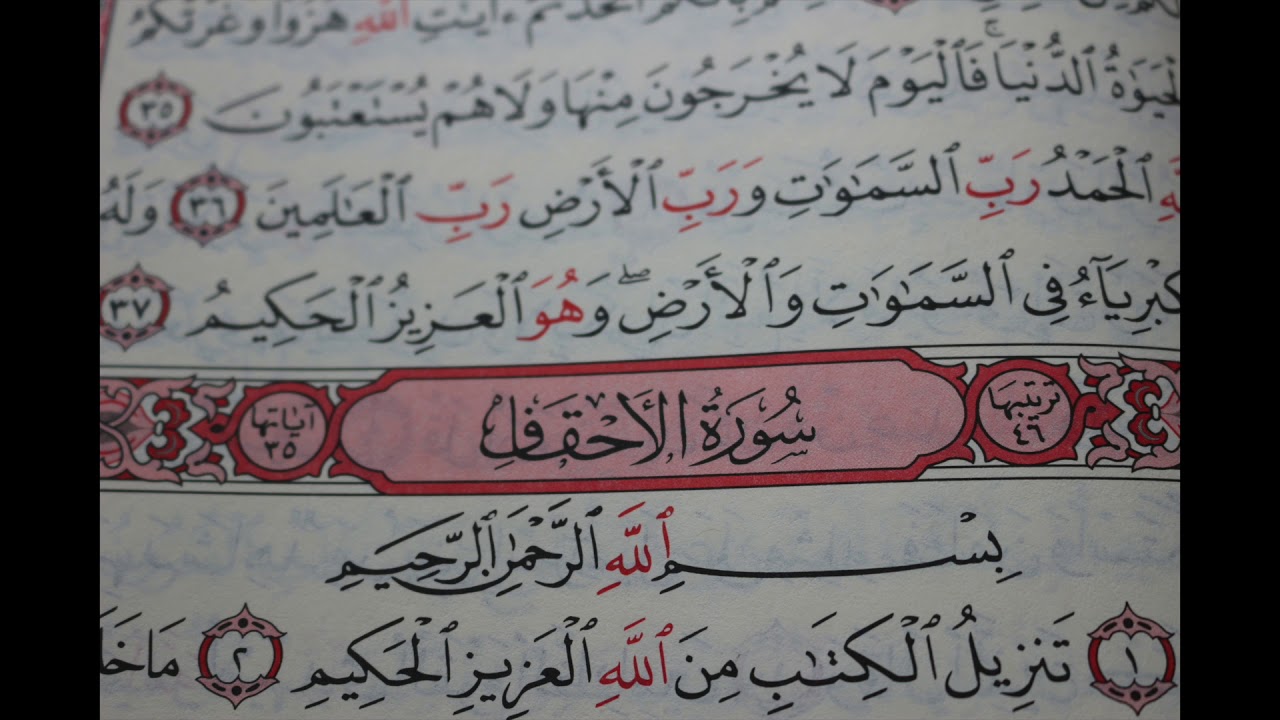 ءَايَٰتِ ٱللَّهِ هُزُوًا وَغَرَّتْكُمُ
ٱلدُّنْيَا ۚ فَٱلْيَوْمَ لَا يُخْرَجُونَ مِنْهَا وَلَا هُمْ يُسْتَعْتَبُونَ ٣٥
ٱلْحَمْدُ رَبِّ ٱلسَّمَٰوَٰتِ وَرَبِّ ٱلْأَرْضِ رَبِّ ٱلْعَٰلَمِينَ ٣٦ وَلَهُ
فِى ٱلسَّمَٰوَٰتِ وَٱلْأَرْضِ ۖ وَهُوَ ٱلْعَزِيزُ ٱلْحَكِيمُ ٣٧
ترتيبها ٤٦ سُورَةُ الأَحْقَافِ آياتها ٣٥
بِسْمِ ٱللَّهِ ٱلرَّحْمَٰنِ ٱلرَّحِيمِ
١ تَنزِيلُ ٱلْكِتَٰبِ مِنَ ٱللَّهِ ٱلْعَزِيزِ ٱلْحَكِيمِ ٢ مَا